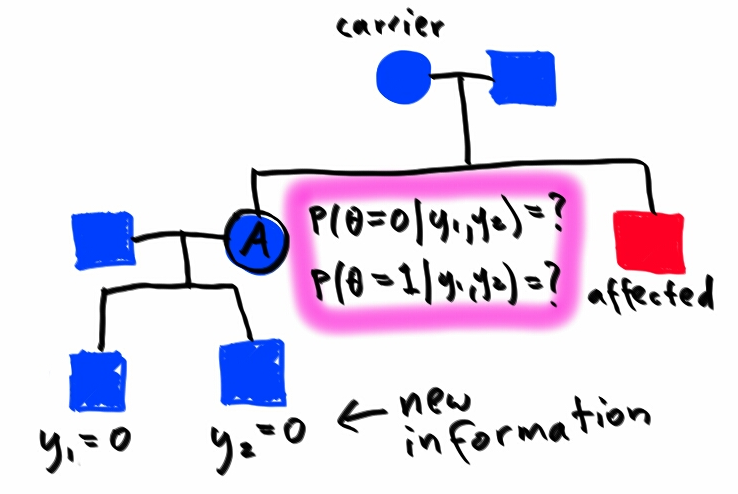 carrier
A
P(θ=0|y₁,y₂)=?
P(θ=1|y₁,y₂)=?
affected
y₁=0
y₂=0
← new
information